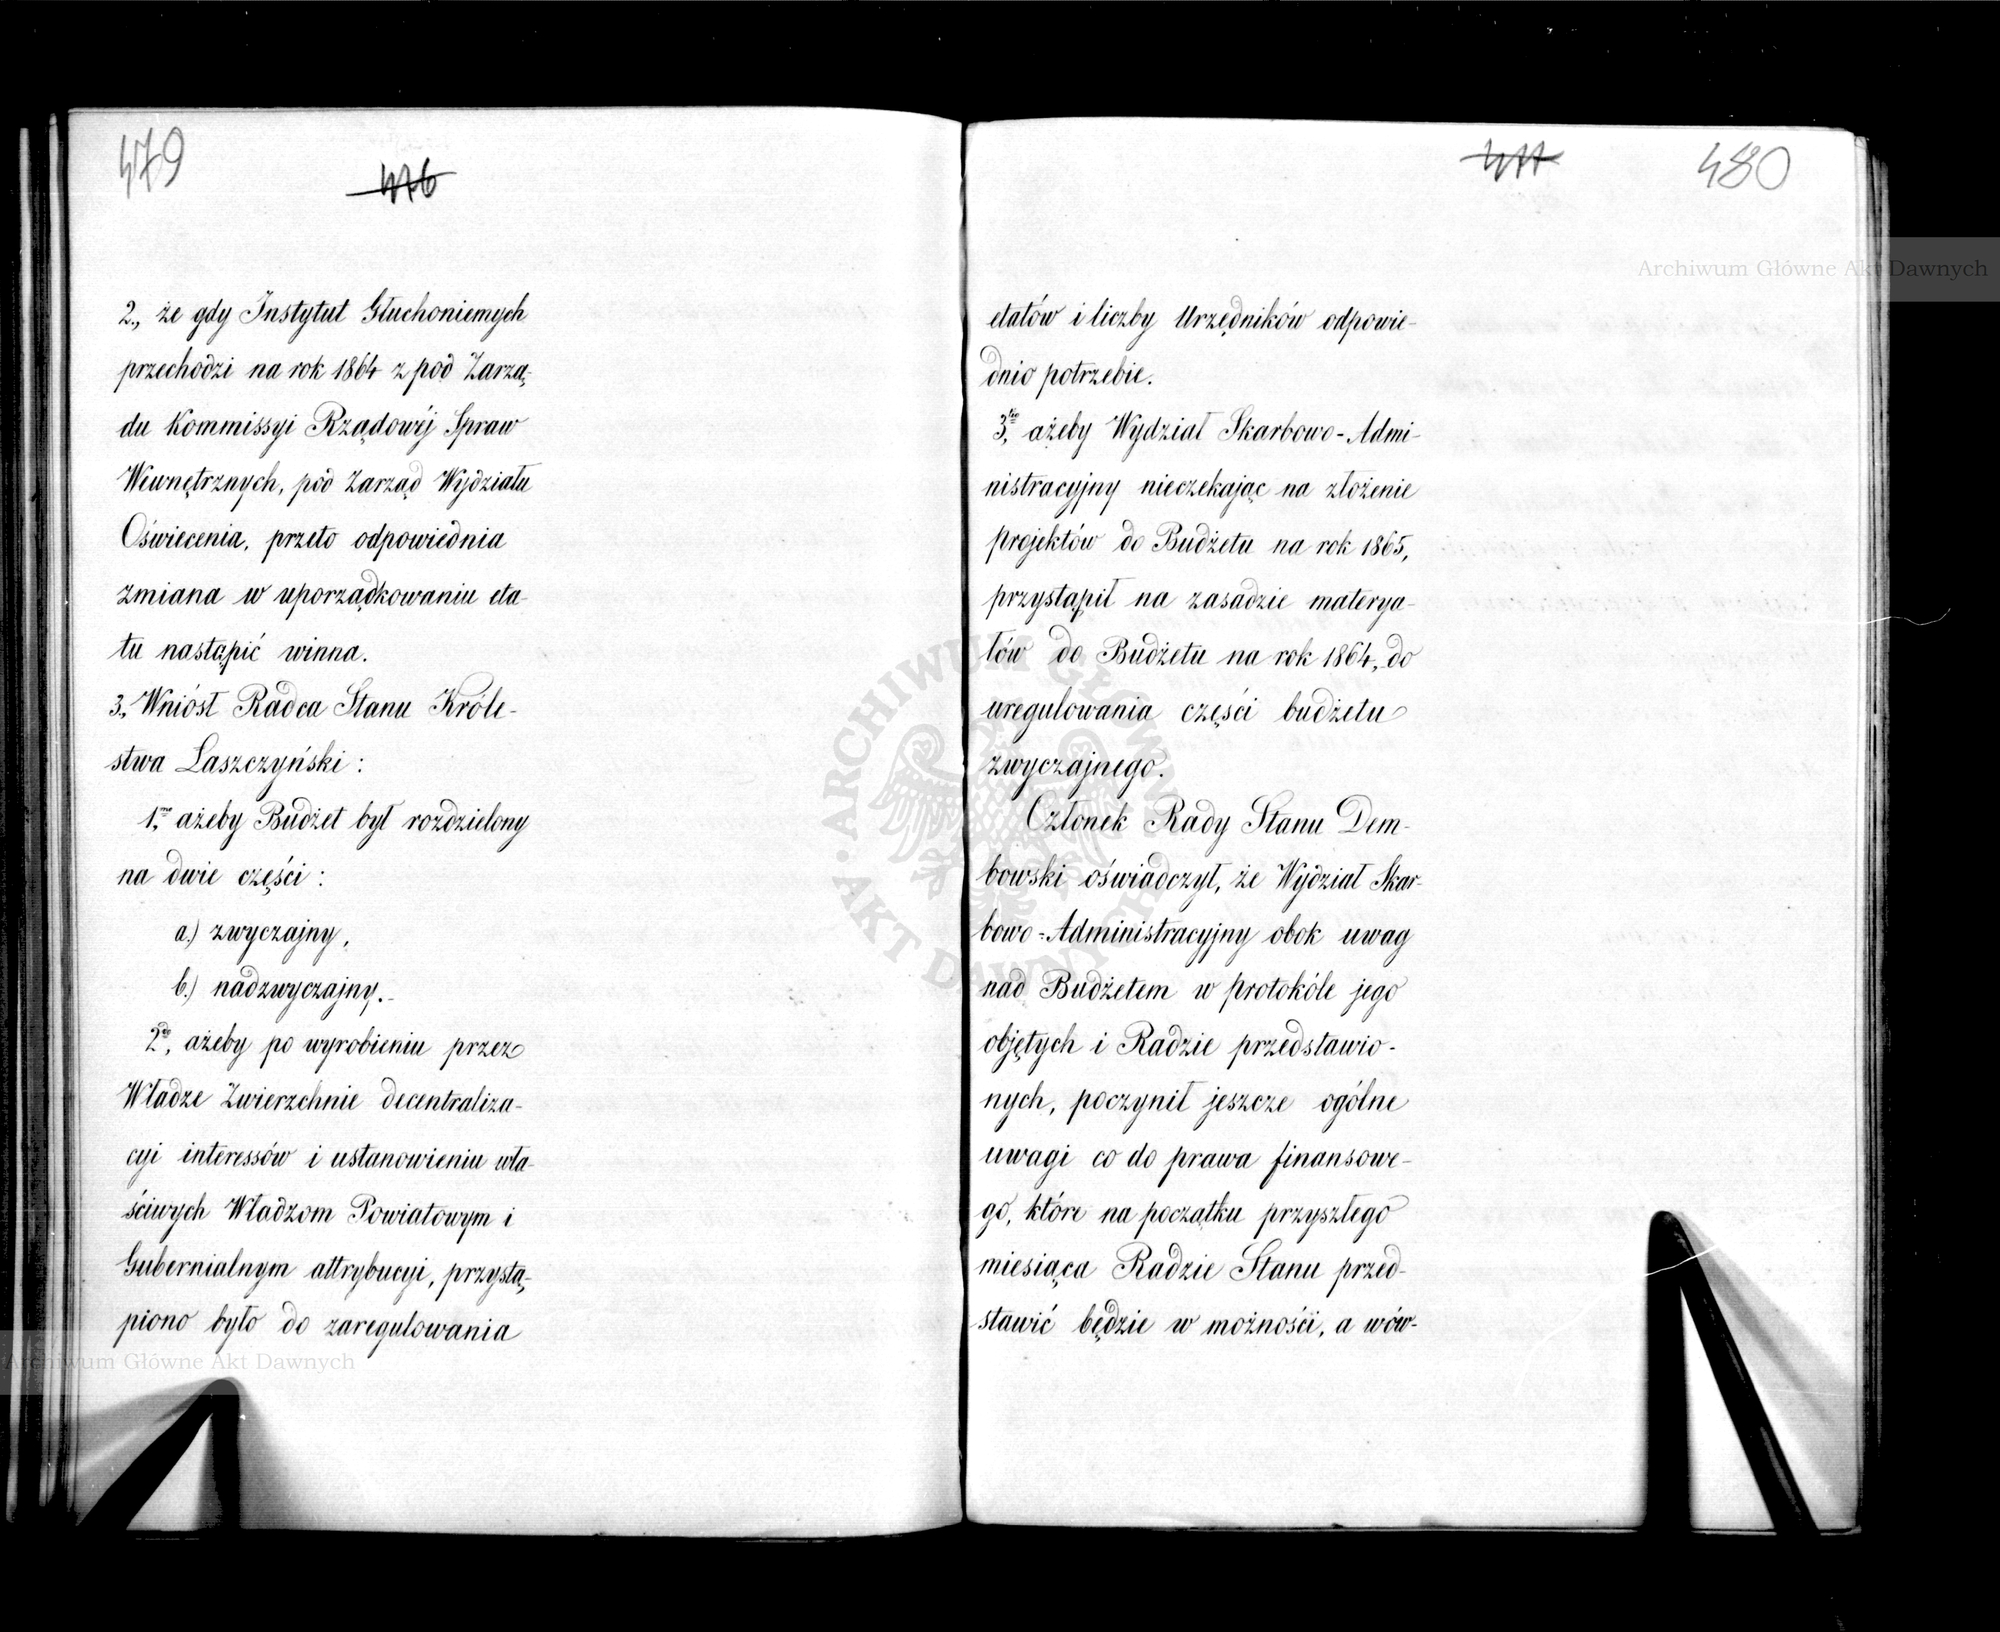 479
476
2., że gdy Instytut Głuchoniemych
przechodzi na rok 1864 z pod Zarzą-
du Kommissyi Rządowéj Spraw
Wewnętrznych, pod Zarząd Wydziału
Oświecenia, przeto odpowiednia
zmiana w uporządkowaniu eta-
tu nastąpić winna.
3., Wniósł Radca Stanu Króle-
stwa Laszczyński:
1mo, ażeby Budżet był rozdzielony
na dwie części:
a.) zwyczajny,
b.) nadzwyczajny.
2do, ażeby po wyrobieniu przez
Władze Zwierzchnie decentraliza-
cyi interessów i ustanowieniu wła-
ściwych Władzom Powiatowym i
Gubernialnym attrybucyi, przystą-
piono było do zaregulowania
477
480
etatów i liczby Urzędników odpowie-
dnio potrzebie.
3tio, ażeby Wydział Skarbowo-Admi-
nistracyjny nieczekając na złożenie
projektów do Budżetu na rok 1865,
przystąpił na zasadzie materya-
łów do Budżetu na rok 1864, do
uregulowania części budżetu
zwyczajnego.
Członek Rady Stanu Dem-
bowski oświadczył, że Wydział Skar-
bowo-Administracyjny obok uwag
nad Budżetem w protokóle jego
objętych i Radzie przedstawio-
nych, poczynił jeszcze ogólne
uwagi co do prawa finansowe-
go, które na początku przyszłego
miesiąca Radzie Stanu przed-
stawić będzie w możności, a wów-
Archiwum Główne Akt Dawnych
Archiwum Główne Akt Dawnych
ARCHIWUM GŁÓWNE AKT DAWNYCH